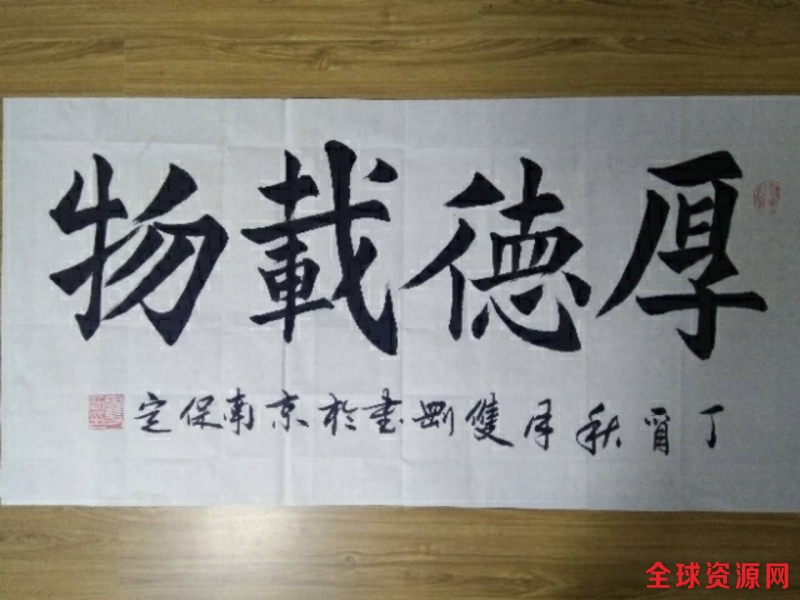 厚德載物
丁酉秋月雙剛書於京南保定
全球资源网